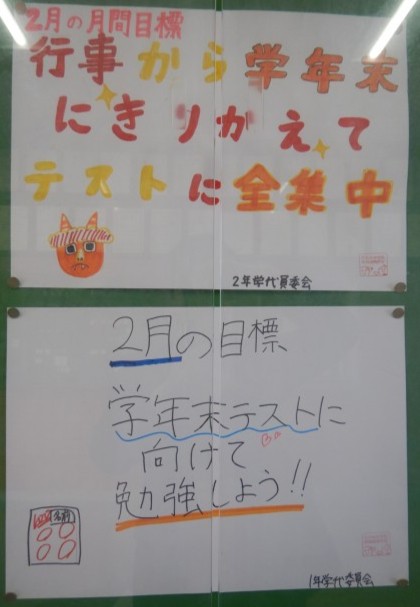 2月の月間目標
行事から学年末
にきりかえて
テストに全集中
2年学代員委会
2月の目標
学年末テストに
向けて
勉強しよう!!
1年学代委員会